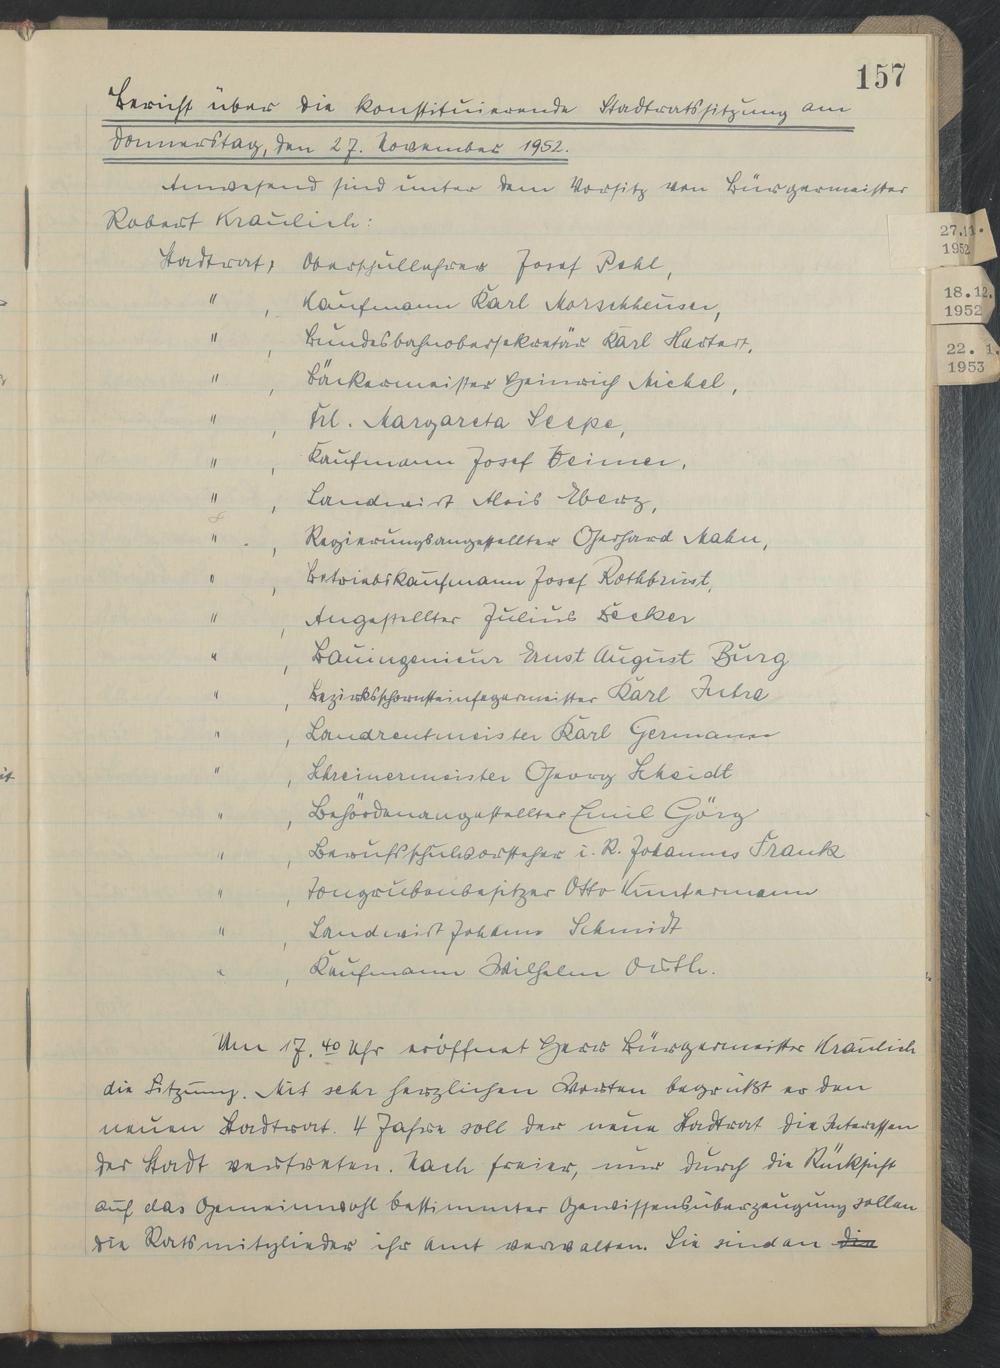 157
Bericht über die konstituierende Stadtratssitzung am
Donnerstag, den 27. November 1952.
Anwesend sind unter dem Vorsitz von Bürgermeister
Robert Kraulich:
27.11.
1952
18.12.
1952
22. 1.
1953
Stadtrat, Oberschullehrer Josef Pehl,
" , Kaufmann Karl Morschheuser,
" , Bundesbahnobersekretär Karl Hartert,
" , Bäckermeister Heinrich Michel,
" , Frl. Margareta
" , Kaufmann Josef
" , Landwirt Alois Eberz,
" , Regierungsangestellter Gerhard
" , Betriebskaufmann Josef Rothbrust,
" , Angestellter Julius Becker
" , Bauingenieur Ernst August Burg
" , Bezirksschornsteinfegermeister Karl
" , Landrentmeister Karl Germann
" , Schreinermeister Georg Scheidt
" , Behördenangestellter Emil Görg
" , Berufsschulvorsteher i. R. Johannes Frank
" , Tongrubenbesitzer Otto
" , Landwirt Johann Schmidt
" , Kaufmann Wilhelm Orth.
Um 17.40 Uhr eröffnet Herr Bürgermeister Kraulich
die Sitzung. Mit sehr herzlichen Worten begrüßt er den
neuen Stadtrat. 4 Jahre soll der neue Stadtrat die Interessen
der Stadt vertreten. Nach freier, nur durch die Rücksicht
auf das Gemeinwohl bestimmter Gewissensüberzeugung sollen
die Ratsmitglieder ihr Amt verwalten. Sie sind an die